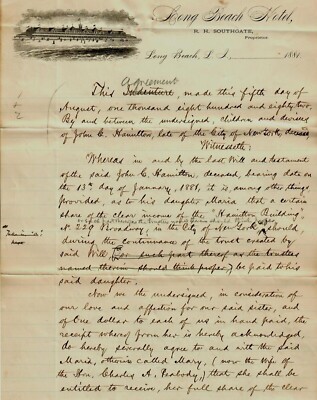 Long Beach Hotel,
R. H. SOUTHGATE,
Proprietor.
Long Beach, L. I., 188
agreement
This Indenture, made this fifth day
of August, one thousand eight hundred and eighty two,
By and between the undersigned, children and devisees
of John C. Hamilton, late of the City of New York, deceased
Witnesseth:
Whereas in and by the last Will and testament
of the said John C. Hamilton, deceased, bearing date on
the 13th day of January, 1881, it is, among other things,
provided, as to his daughter Maria that a certain
share of the clear income of the "Hamilton Building"
No. 229 Broadway, in the City of New York should,
during the continuance of the trust created by
said Will, (or such part thereof as the trustees
named therein should think proper) be paid to his
said daughter.
Now we the undersigned, in consideration of
our love and affection for our said sister, and
of One dollar to each of us in hand paid, the
receipt whereof from her is hereby acknowledged,
do hereby severally agree to and with the said
Maria, otherwise called Mary, (now the Wife of
the Hon. Charles A. Peabody,) that she shall be
entitled to receive, her full share of the clear